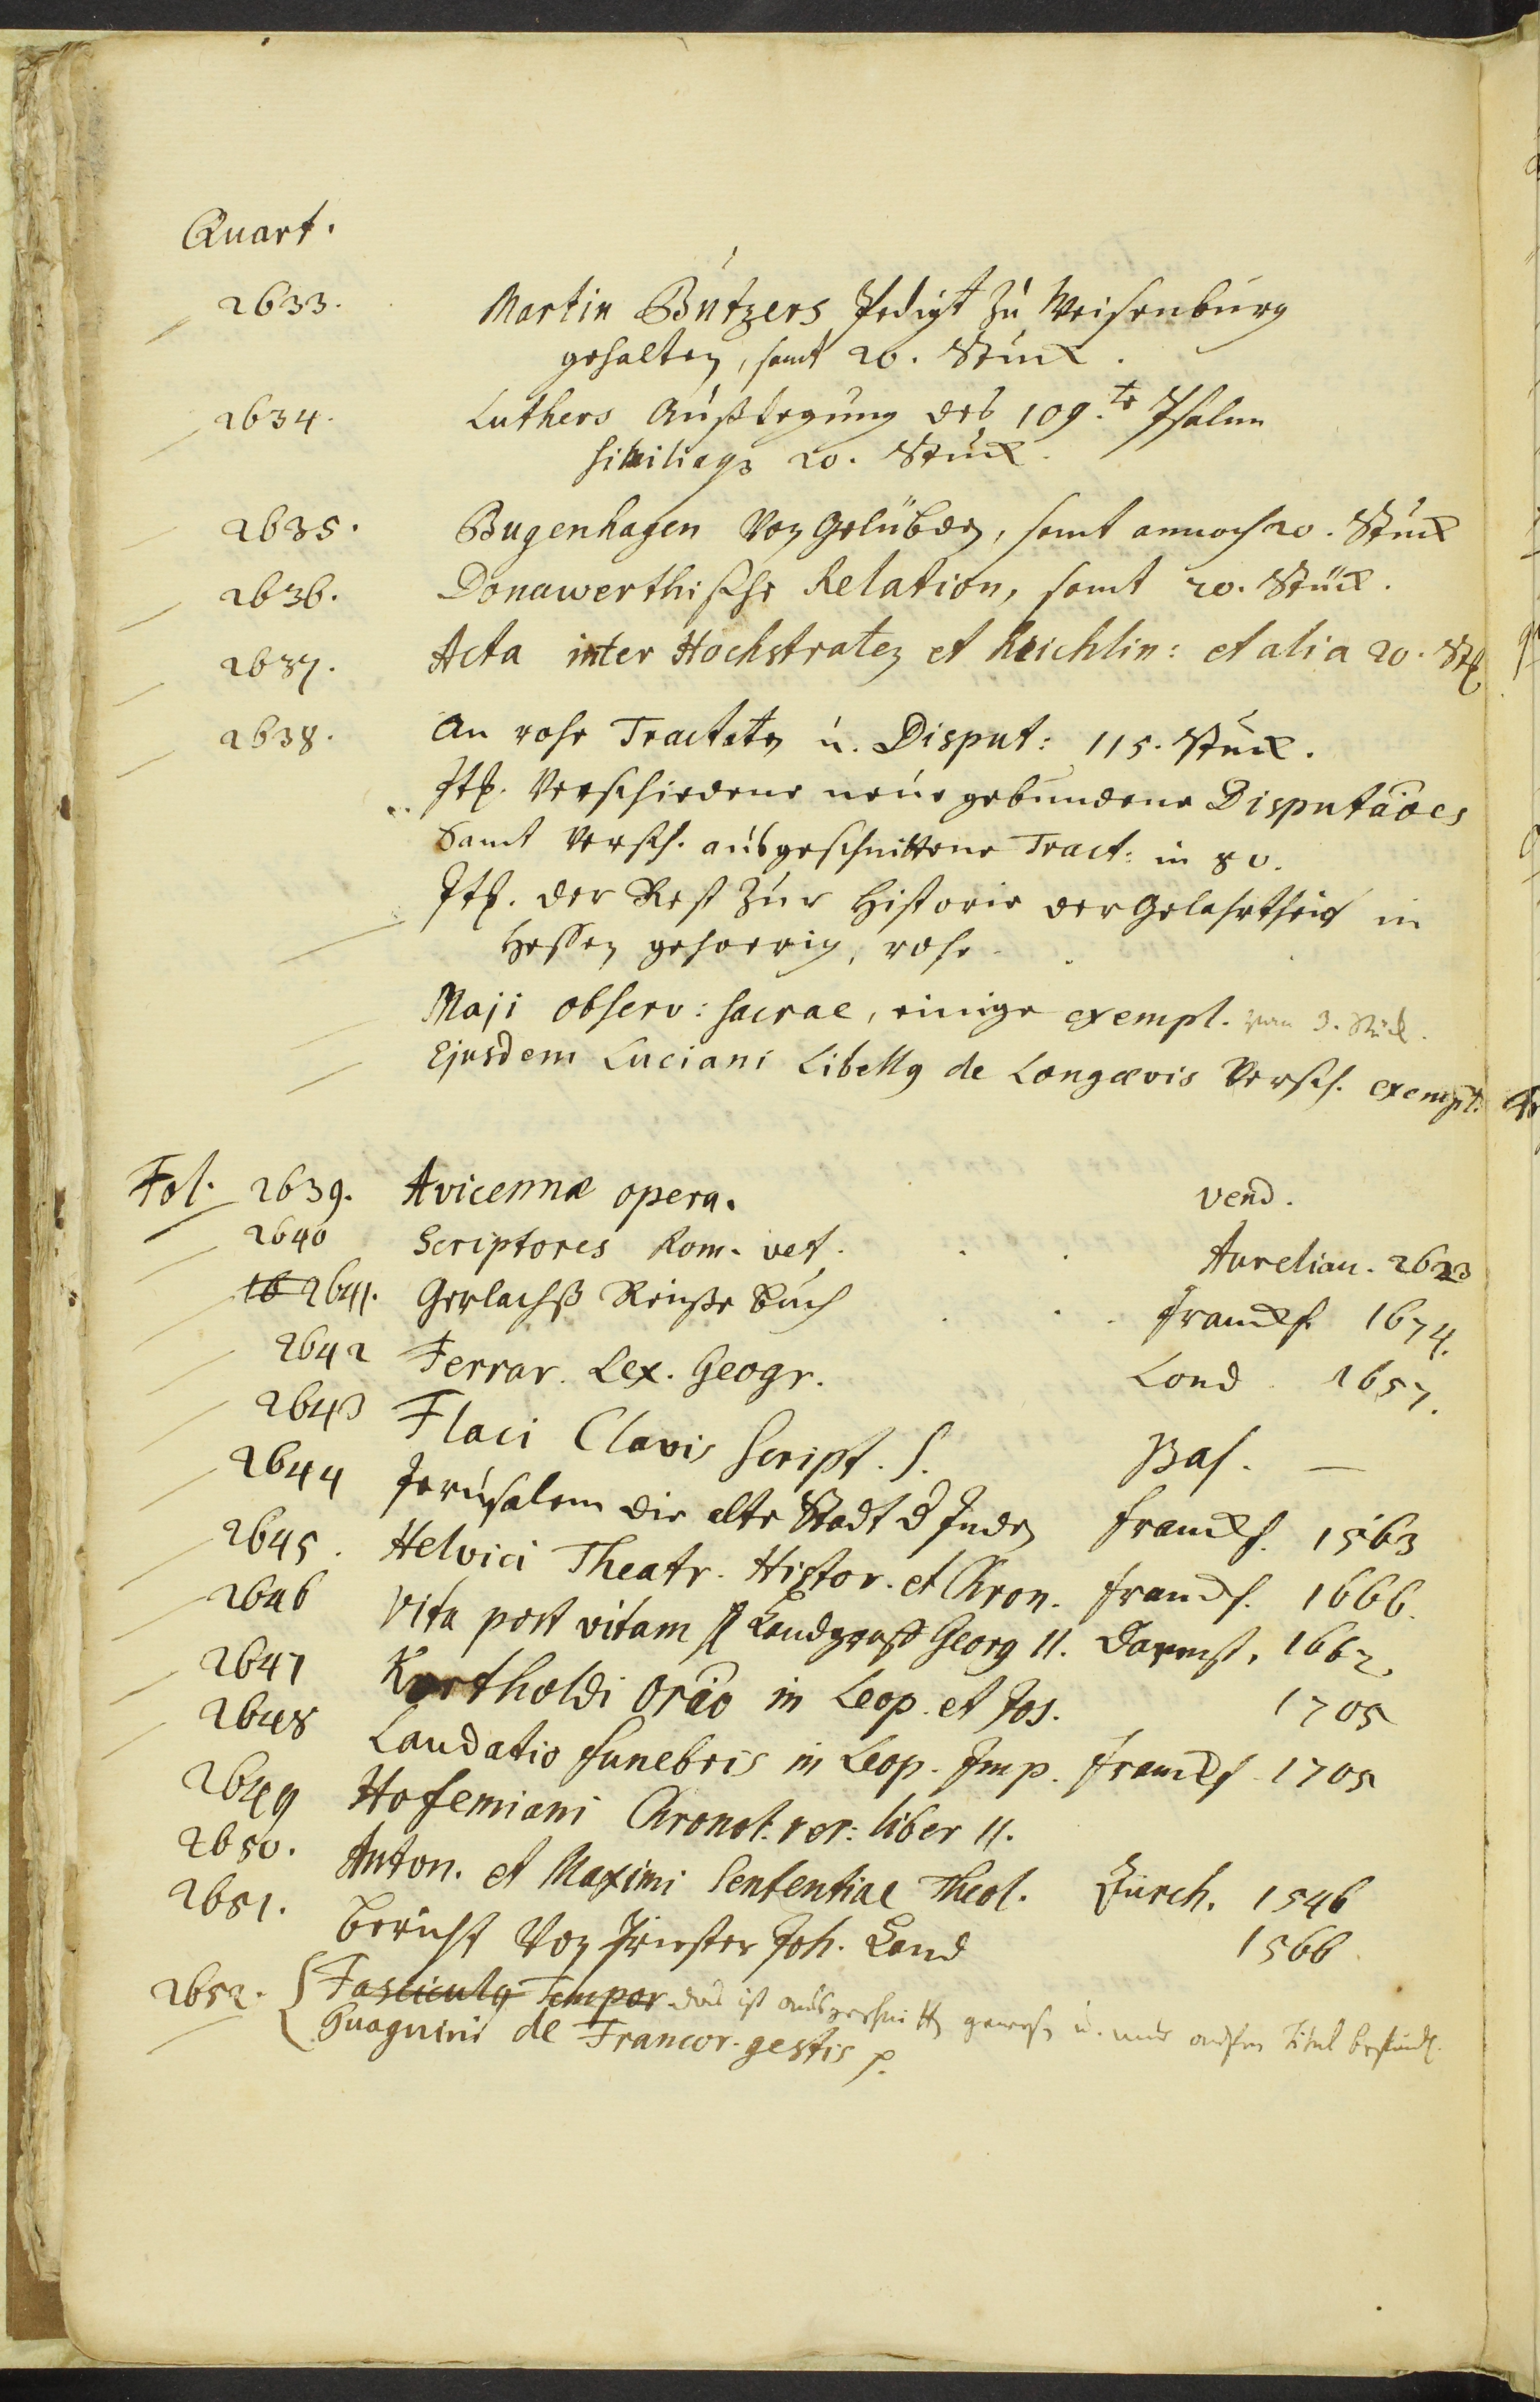 Quart.
2633. Martin Butzers Predigt zu Weisenburg
gehalten, samt 20. Stück.
2634. Luthers Außlegung des 109.te Psalm
20. Stück.
2635. Bugenhagen Von Gelübden, samt annoch 20. Stück
2636. Donawerthische Relation, samt 20. Stück.
2637. Acta inter Hochstraten et Reichlin: et alia 20. St.
2638. An rohe Tractaten u. Disput: 115. Stück.
It. Verschiedene neue gebundene Disputaōes
Samt versch. ausgeschnittene Tract: in 8v.
It. der Rest zur Historie der Gelahrtheit in
Hessen gehoerig, rohe.
Maji observ: sacrae, einige exempl. 3. Stück.
Ejusdem Luciani Libellg de Longævis Versch. exempl.
Fol. 2639. Avicennæ opera. vend.
2640 Scriptores Rom. vet. Aurelian. 2623
16 2641. Gerlachß Reuße Buch franckf. 1674.
2642 Ferrar. Lex. Geogr. Lond. 1657.
2643 Flaci Clavis Script. S. Bas. —
2644 Jerusalem die alte Stadt d Juden franckf. 1563
2645. Helvici Theatr. Histor. et Chron. franckf. 1666.
2646 Vita post vitam Landgraff Georg II. Darmst. 1662.
2647 Kortholdi oraō in Leop. et Jos. 1705
2648 Laudatio funebris in Leop. Imp. franckf 1705
2649 Hofemiani Chronol: rer: liber II.
2650. Anton. et Maximi Sententiae Theol. Zürch. 1546
2651. Bericht Von Priester Joh. Land 1566
2652. Fasciculg Tempor das ist ausgeschnitten gewesen u. nur Titul
Guagnini de Francor. gestis p.